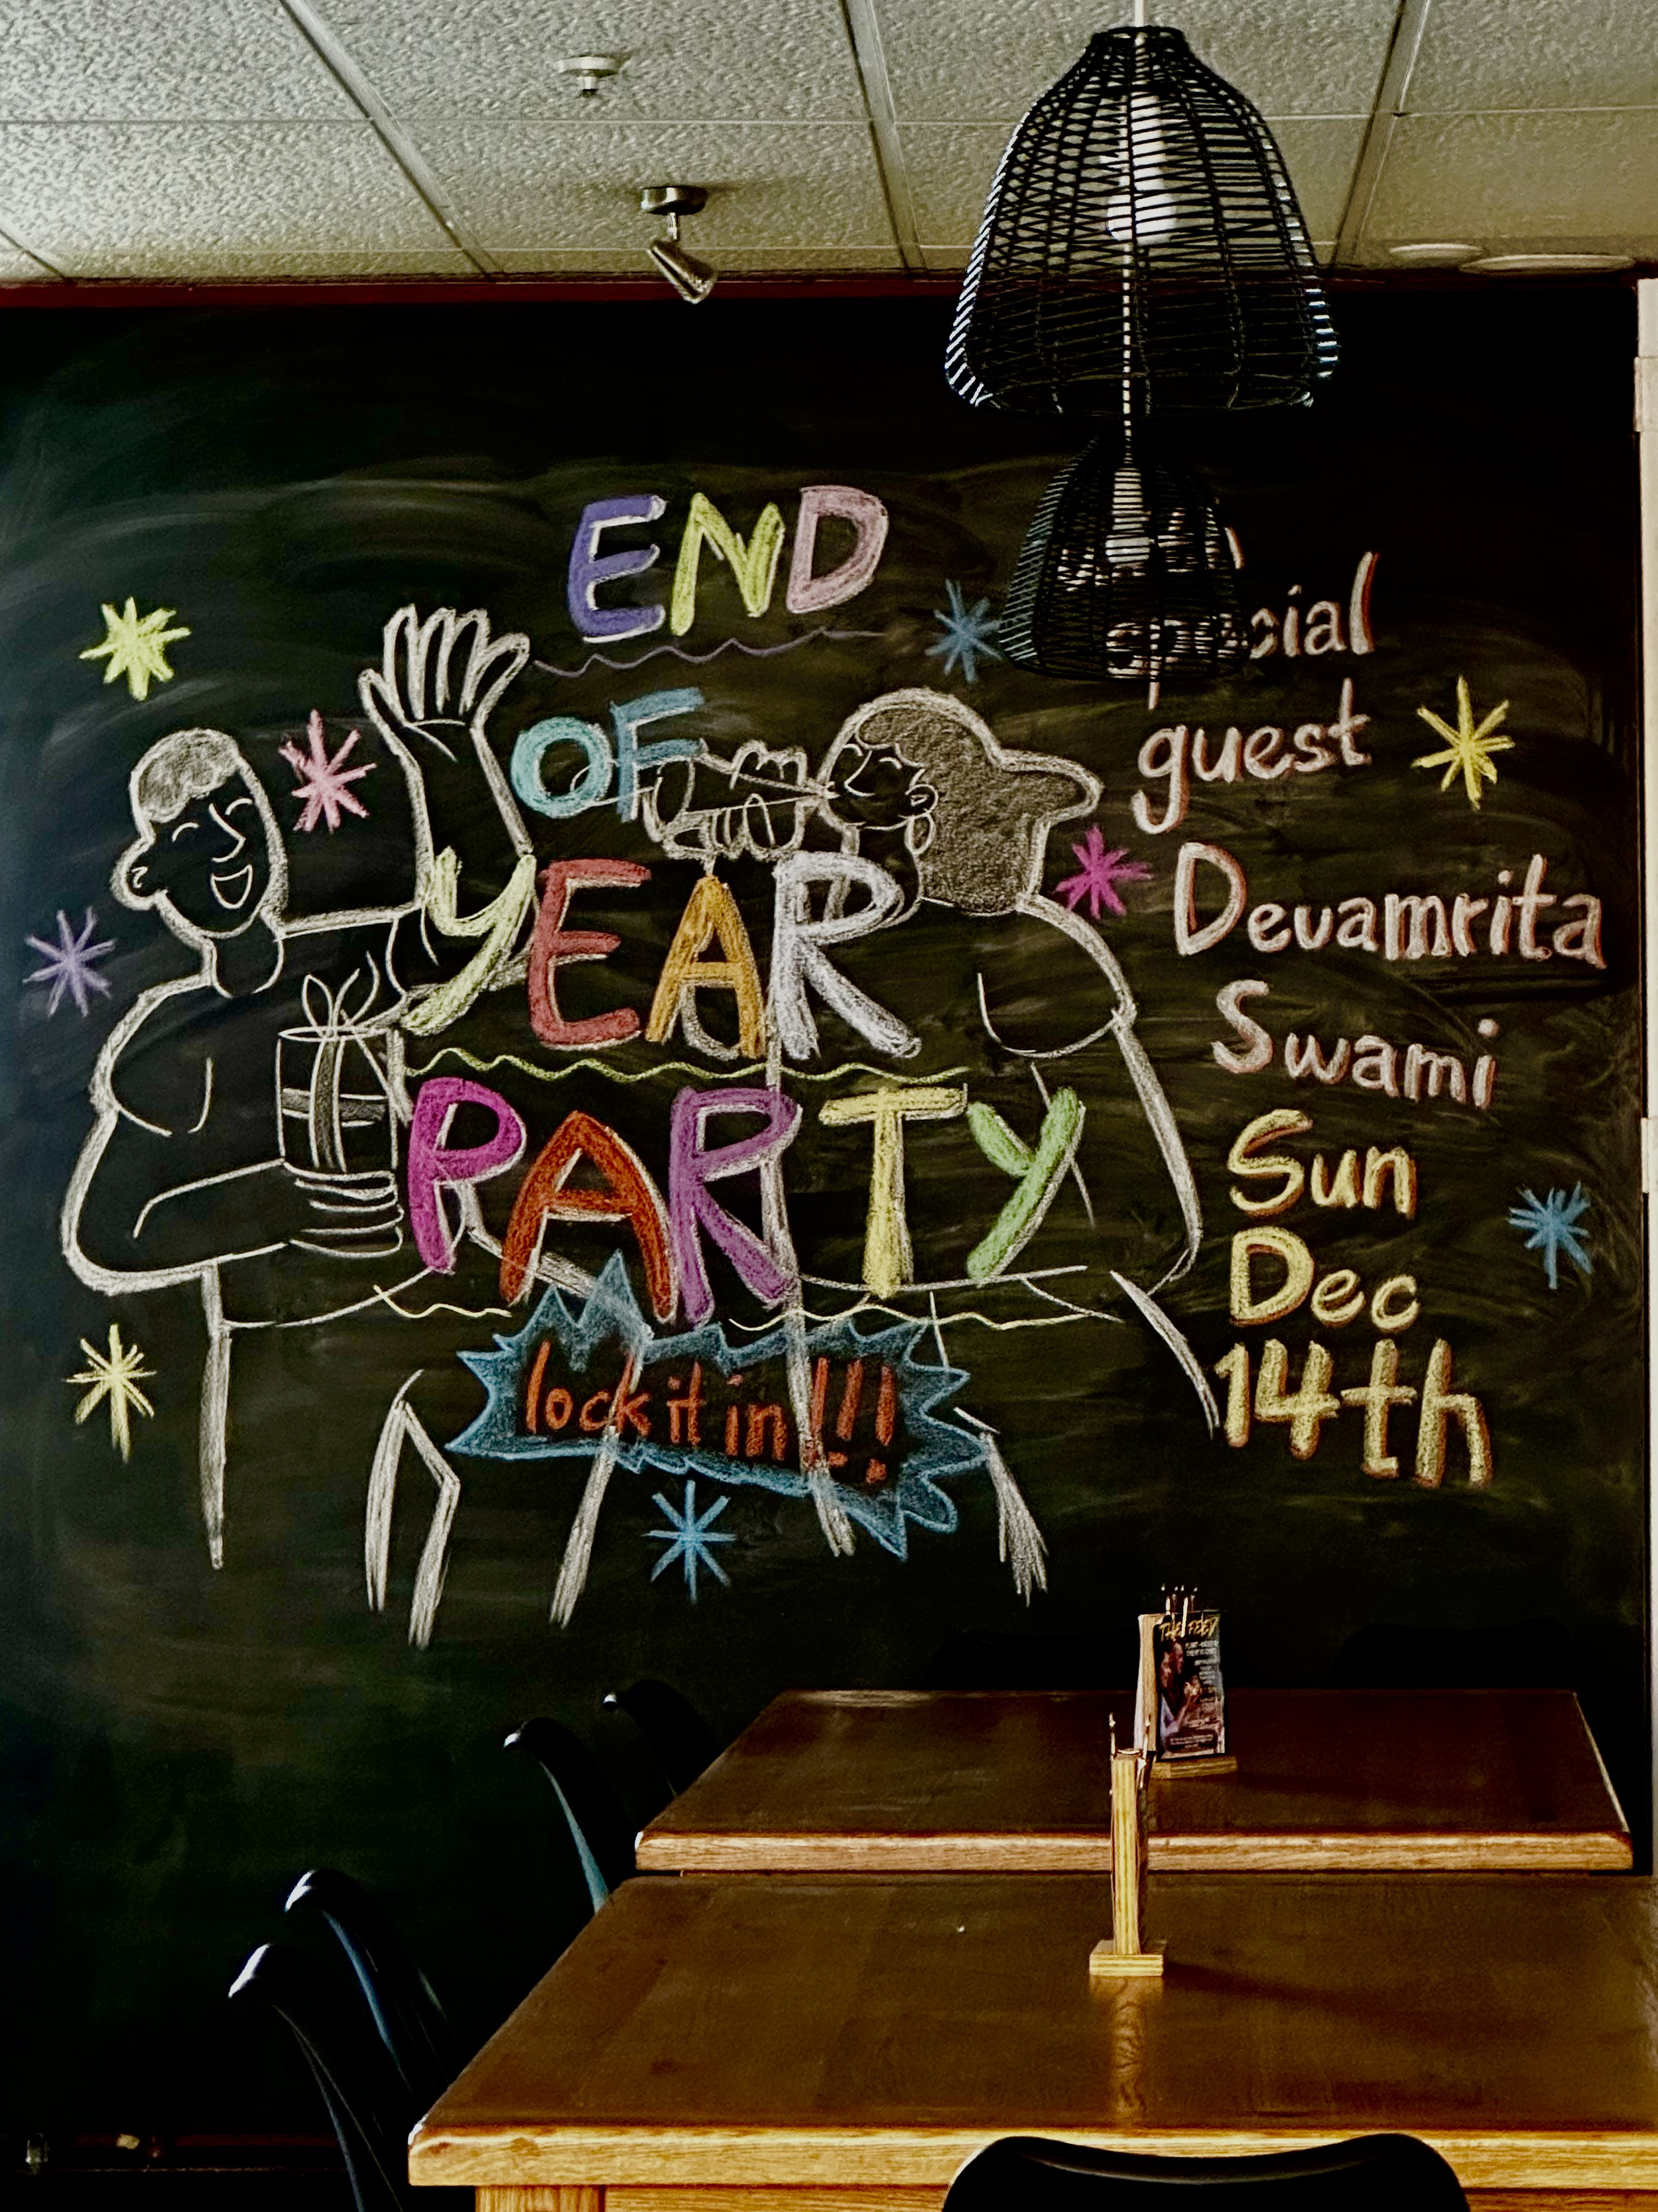 END
OF
YEAR
PARTY
lock it in!!!
special
guest
Devamrita
Swami
Sun
Dec
14th
THE FEED